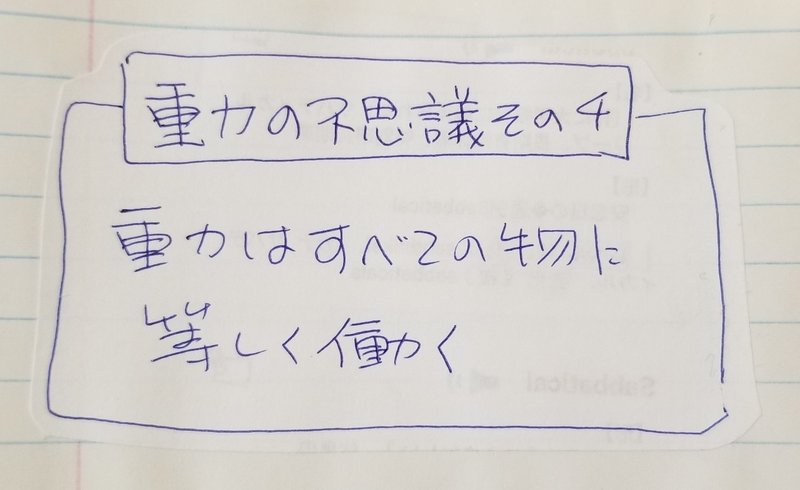 重力の不思議その4
重力はすべての物に
等しく働く